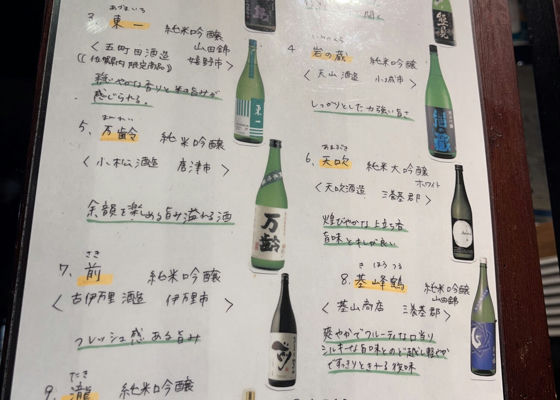 あづまいち
3. 東一 純米吟醸
山田錦
〈五町田酒造 嬉野市〉
((佐賀県内限定商品))
穏やかな香りと米の旨みが
感じられる。
4. 岩の蔵 純米吟醸
〈天山酒造 小城市〉
しっかりとした力強い旨さ
5. 万齢 純米吟醸
〈小松酒造 唐津市〉
余韻を楽しめる旨み溢れる酒
あまぶき
6. 天吹 純米大吟醸
ホワイト
〈天吹酒造 三養基郡〉
煌びやかな上立ち香
旨味とキレが良い
さき
7. 前 純米吟醸
〈古伊万里酒造 伊万里市〉
フレッシュ感ある旨み
き ほう つる
8. 基峰鶴 純米吟醸
山田錦
〈基山商店 三養基郡〉
爽やかでフルーティな口当り
シルキーな旨味とのど越し軽やか
ですっきりときれる後味
たき
9. 瀧 純米吟醸
東一
万齢